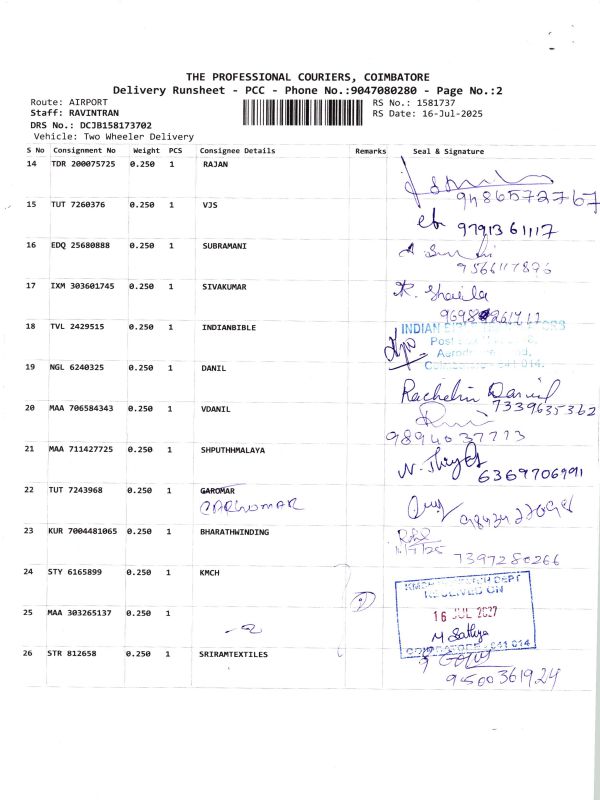 THE PROFESSIONAL COURIERS, COIMBATORE
Delivery Runsheet - PCC - Phone No.:9047080280 - Page No.:2
Route: AIRPORT RS No.: 1581737
Staff: RAVINTRAN RS Date: 16-Jul-2025
DRS No.: DCJB158173702
Vehicle: Two Wheeler Delivery
S No Consignment No Weight PCS Consignee Details Remarks Seal & Signature
14 TDR 200075725 0.250 1 RAJAN
9486572767
15 TUT 7260376 0.250 1 VJS
9791361117
16 EDQ 25680888 0.250 1 SUBRAMANI
9566117876
17 IXM 303601745 0.250 1 SIVAKUMAR
R. Shaila
18 TVL 2429515 0.250 1 INDIANBIBLE
INDIAN
19 NGL 6240325 0.250 1 DANIL
Rachelin Daniel
7339635362
20 MAA 706584343 0.250 1 VDANIL
9894037773
21 MAA 711427725 0.250 1 SHPUTHHMALAYA
6369706991
22 TUT 7243968 0.250 1 GAROMAR
CARWOMAR
23 KUR 7004481065 0.250 1 BHARATHWINDING
7397280266
24 STY 6165899 0.250 1 KMCH
DEPT
RECEIVED ON
16 JUL
M Sathya
641 014
25 MAA 303265137 0.250 1
26 STR 812658 0.250 1 SRIRAMTEXTILES
9500361924